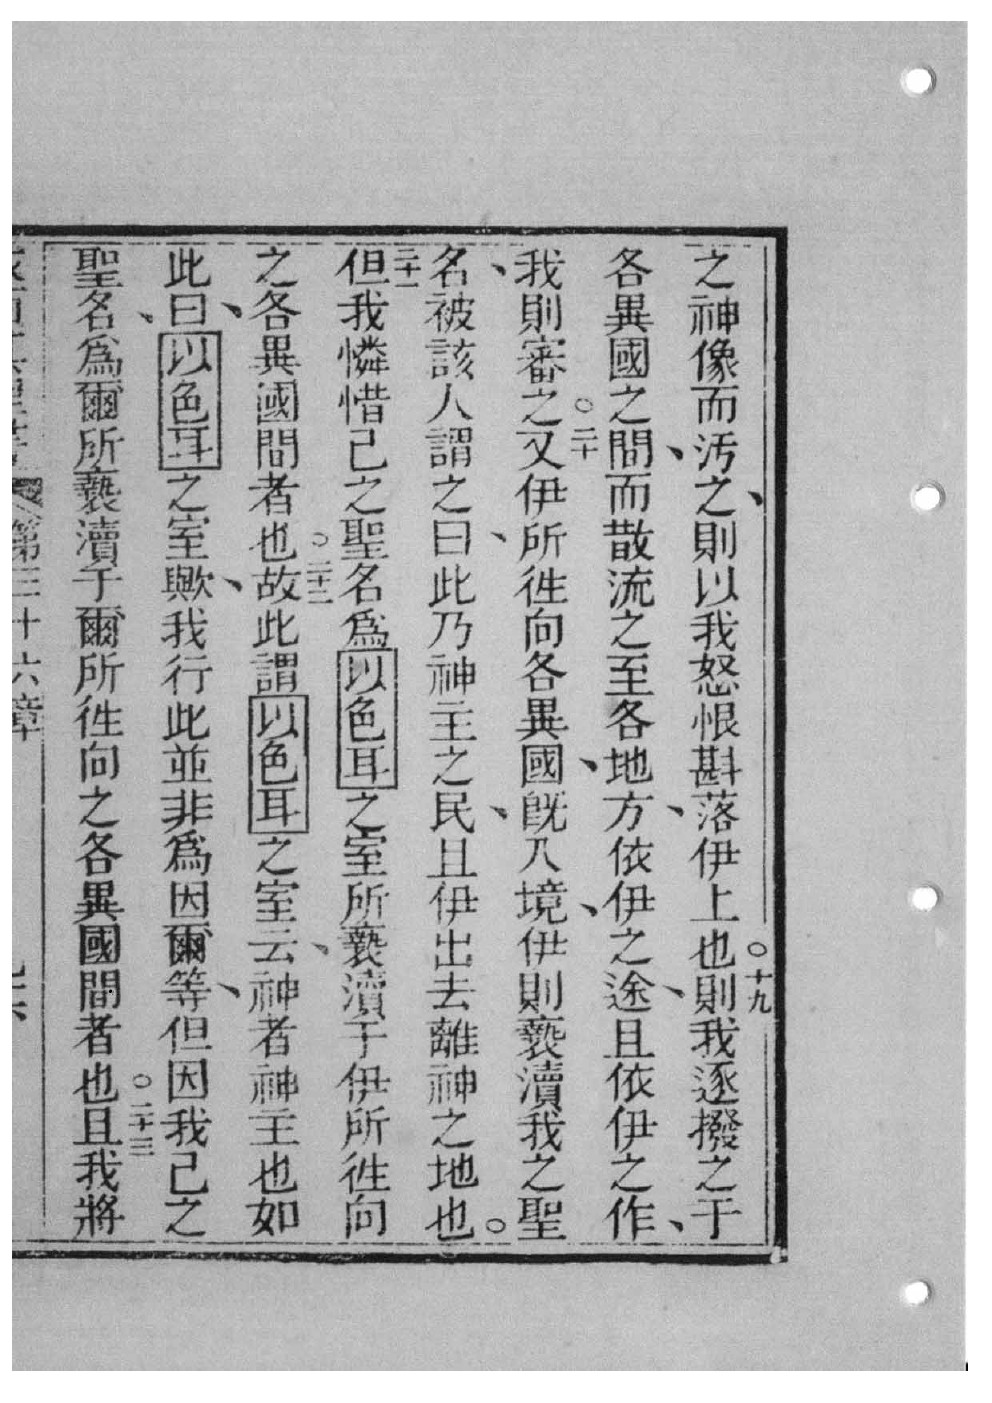 之神像而汚之、則以我怒恨斟落伊上也。十九則我逐撥之于
各異國之間、而散流之至各地方、依伊之途、且依伊之作、
我則審之。二十又伊所徃向各異國、旣入境、伊則褻瀆我之聖
名、被該人謂之曰、此乃神主之民、且伊出去離神之地也。
二十一但我憐惜己之聖名爲以色耳之室所褻瀆于伊所徃向
之各異國間者也。二十二故此謂以色耳之室云、神者神主也如
此曰、以色耳之室歟、我行此並非爲因爾等、但因我己之
聖名、爲爾所褻瀆于爾所徃向之各異國間者也。二十三且我將
第三十六章